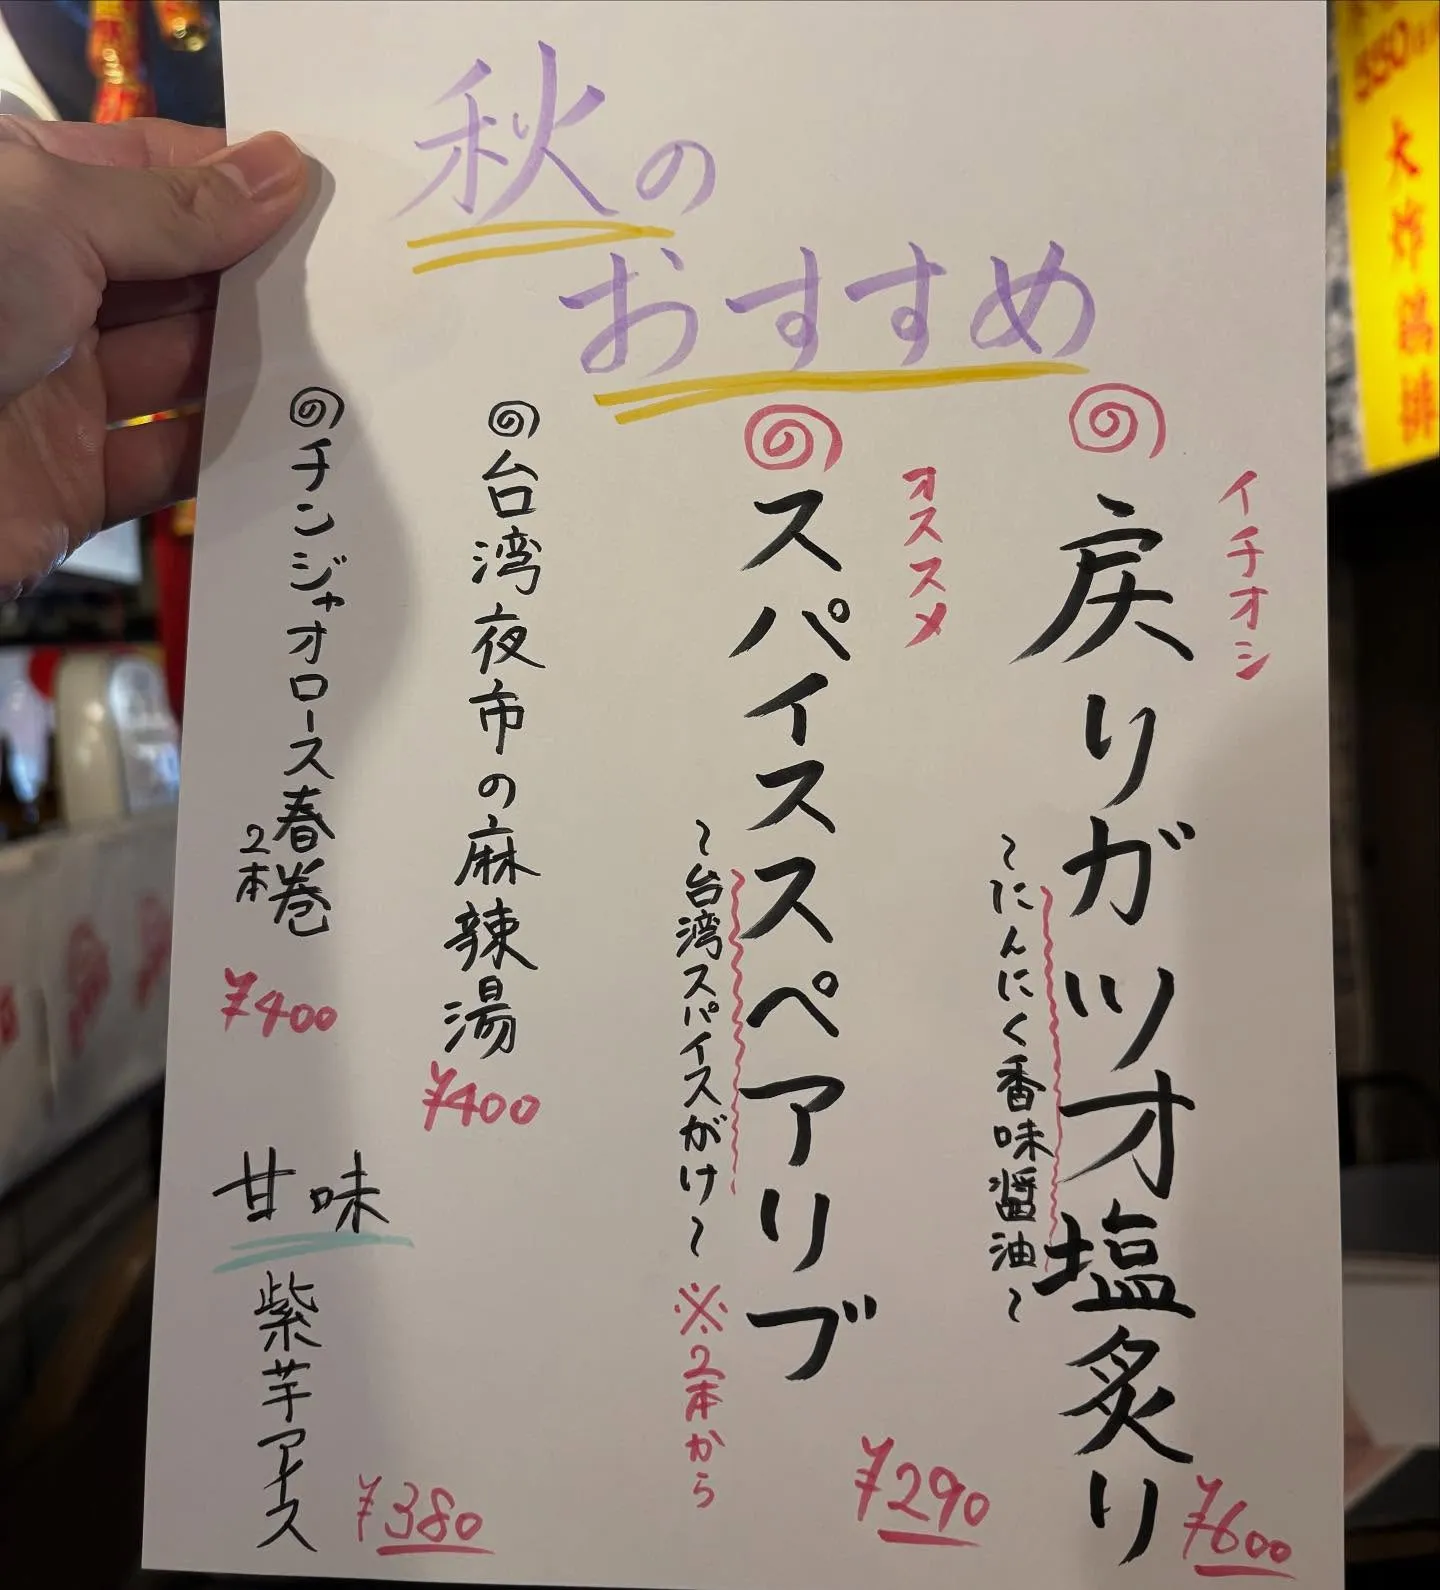 秋の
おすすめ
イチオシ
戻りガツオ塩炙り
~にんにく香味醤油~
¥600
オススメ
スパイススペアリブ
~台湾スパイスがけ~
※2本から
¥290
台湾夜市の麻辣湯
¥400
チンジャオロース春巻
2本
¥400
甘味
紫芋アイス
¥380
大炸鶏排